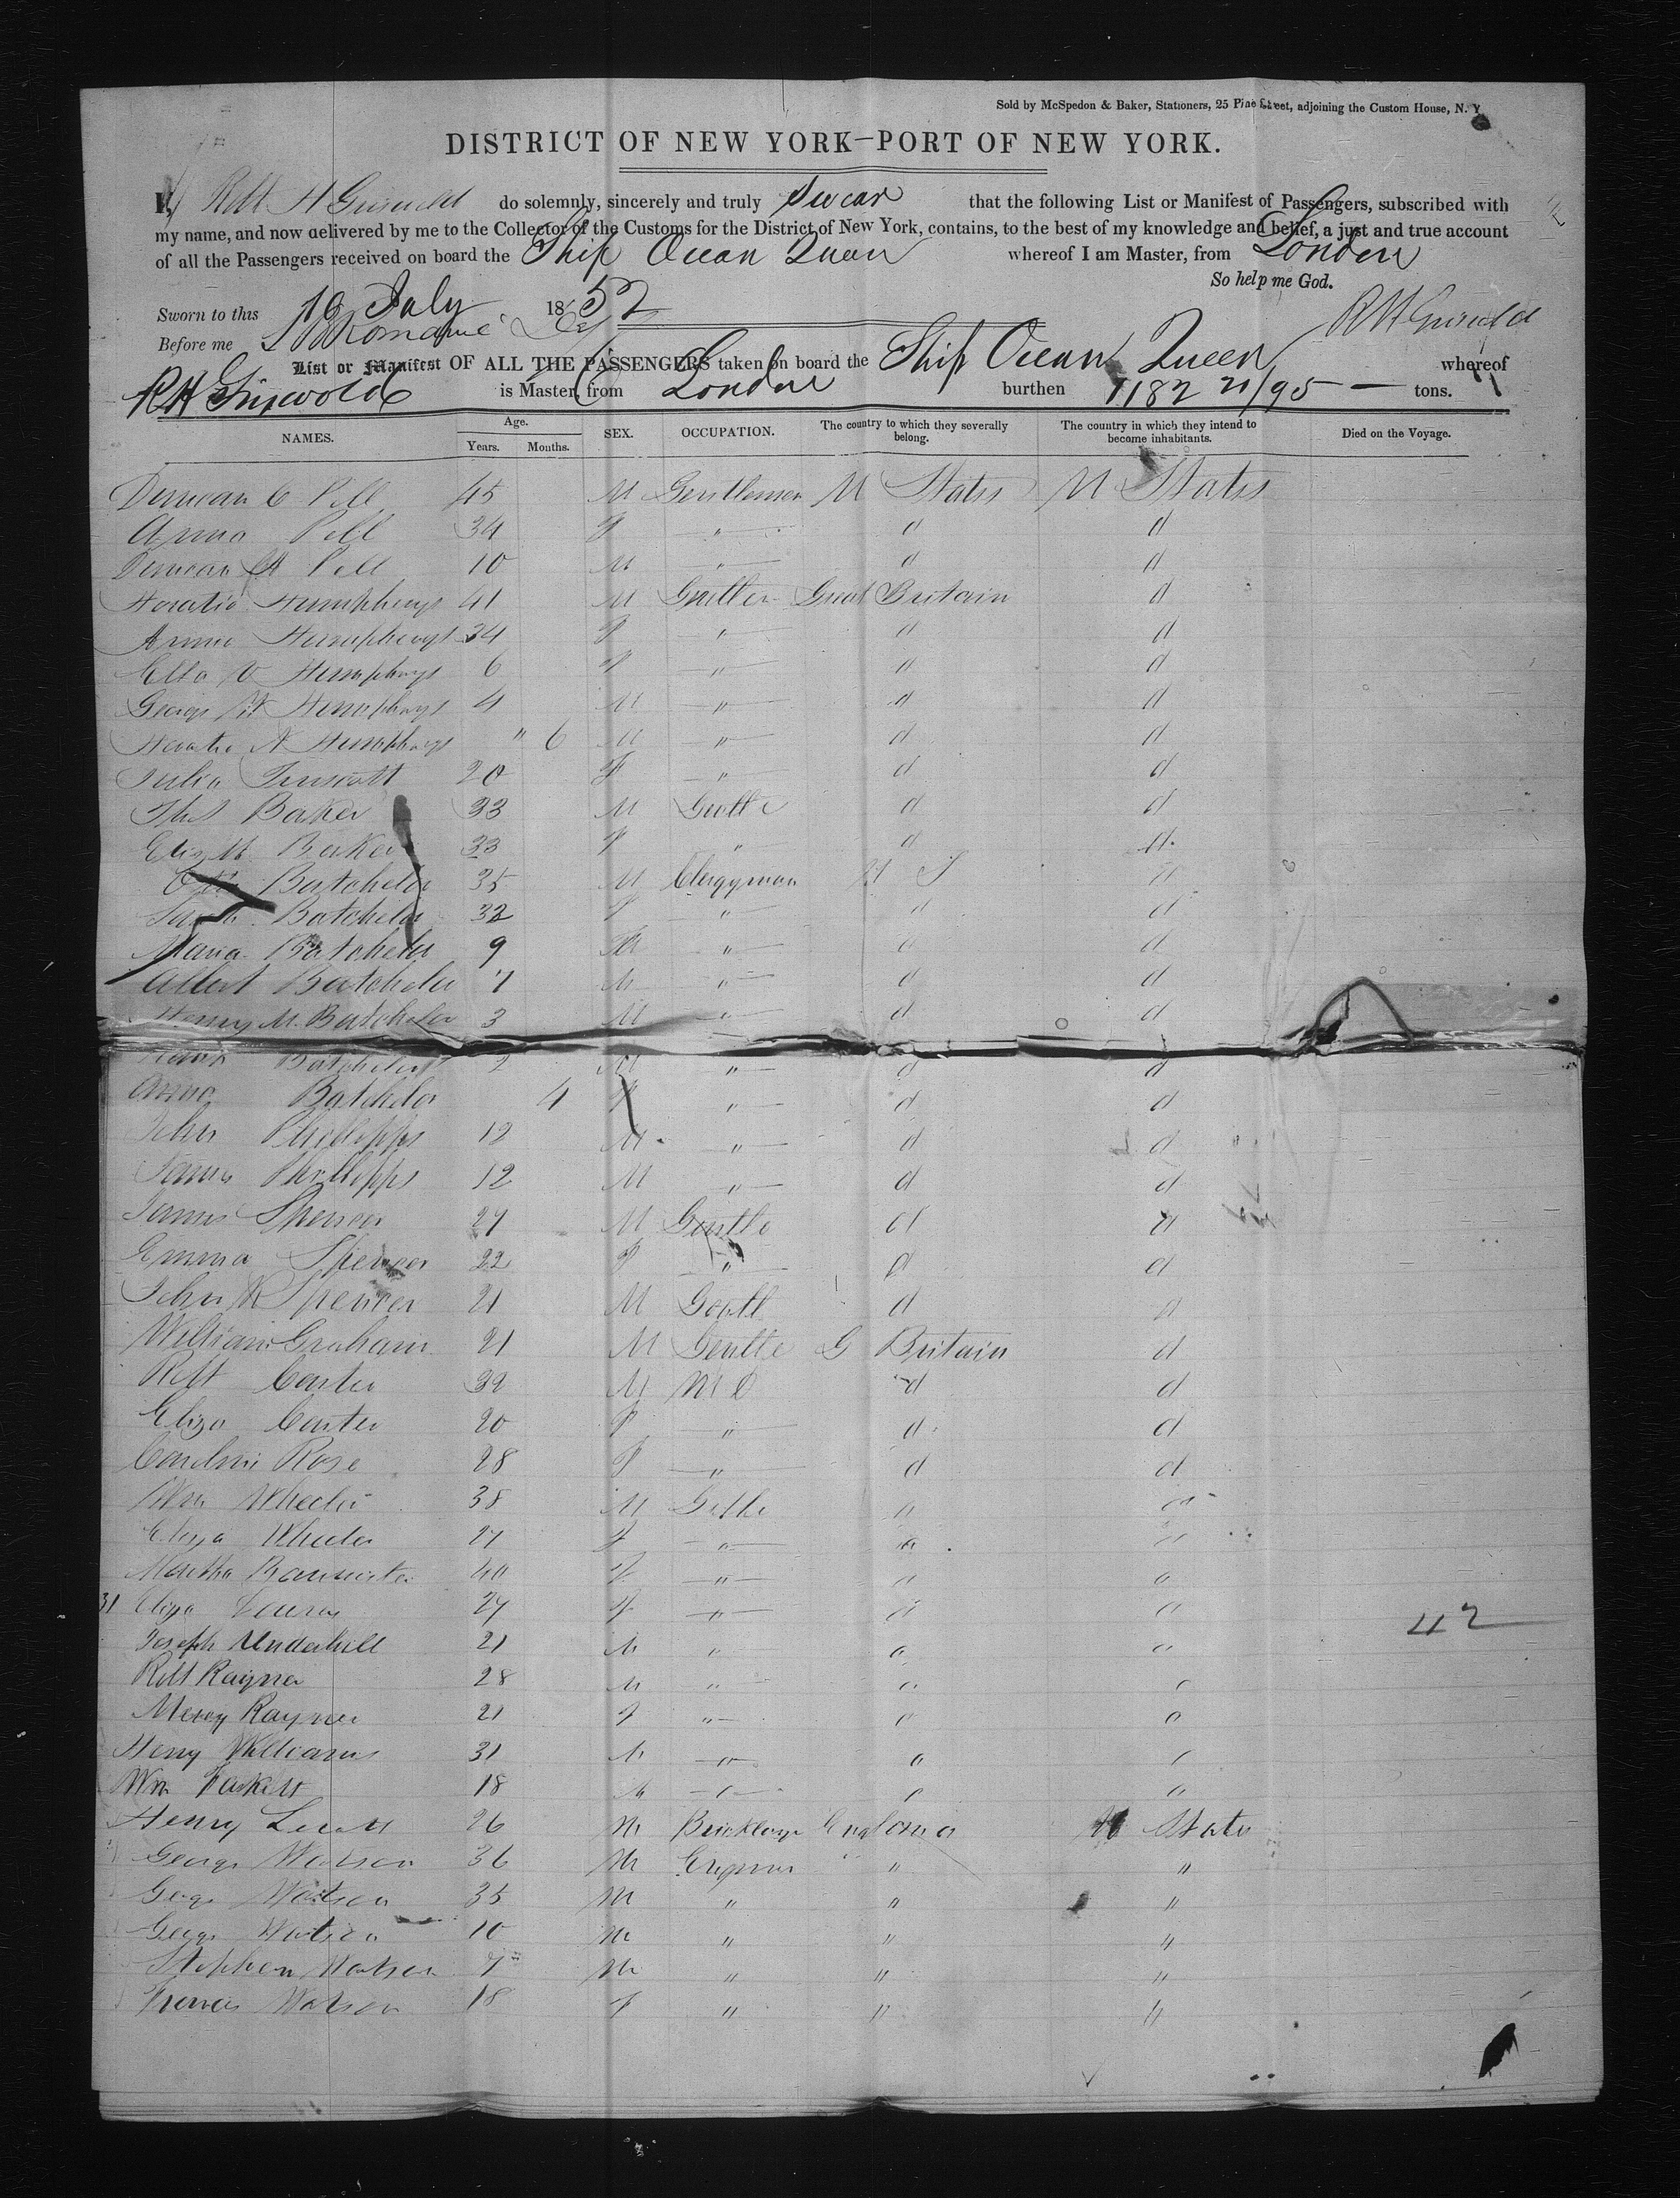 Sold by McSpedon & Baker, Stationers, 25 Pine Street, adjoining the Custom House, N. Y.
DISTRICT OF NEW YORK—PORT OF NEW YORK.
I, Robt H Griswold do solemnly, sincerely and truly swear that the following List or Manifest of Passengers, subscribed with
my name, and now delivered by me to the Collector of the Customs for the District of New York, contains, to the best of my knowledge and belief, a just and true account
of all the Passengers received on board the Ship Ocean Queen whereof I am Master, from London
So help me God.
Sworn to this 16 July 1852 RH Griswold
Before me
List or Manifest OF ALL THE PASSENGERS taken on board the Ship Ocean Queen whereof
RH Griswold is Master, from London burthen 1182 21/95 — tons.
NAMES. Age. Years. Months. SEX. OCCUPATION. The country to which they severally belong. The country in which they intend to become inhabitants. Died on the Voyage.
Duncan C Pell 45 M Gentleman U States U States
Anna Pell 34 F " d d
Duncan A Pell 10 M " d d
Horatio Humphreys 41 M Gentlen Great Britain d
Annie Humphreys 34 F " d d
Ella V Humphreys 6 F " d d
George W Humphreys 4 M " d d
Horatio N Humphreys " 6 M " d d
Julia 20 F " d d
Thos Baker 33 M Gentle d d
Elizth Baker 33 F " d d
Batchelor 35 M Clergyman U S d
Sarah Batchelor 32 F " d d
Maria Batchelor 9 " d d
Albert Batchelor 7 M " d d
Henry M. Batchelor 3 M " d d
Batchelor 2 M " d d
Anna Batchelor 4 F " d d
John Phillipps 12 M " d d
James Phillipps 12 M " d d
James Spencer 27 M Gentle d d
Emma Spencer 22 F " d d
John R Spencer 21 M Gentl d d
William Graham 21 M Gentle G Britain d
Robt Carter 32 M M D d d
Eliza Carter 20 F " d d
Caroline Rose 28 F " d d
John Wheeler 38 M Gentle d d
Eliza Wheeler 27 F " d d
Martha Bannister 40 F " d d
31 Eliza 27 F " d d 42
Joseph Underhill 21 M " d d
Robt Rayner 28 M " d d
Mercy Rayner 21 F " d d
Henry Williams 31 M " d d
Wm Taskett 18 M " d d
Henry 26 M Bricklayer England U States
George Watson 36 M " "
George Watson 35 M " " "
George Watson 10 M " " "
Stephen Watson 7 M " " "
Frances Watson 18 F " " "